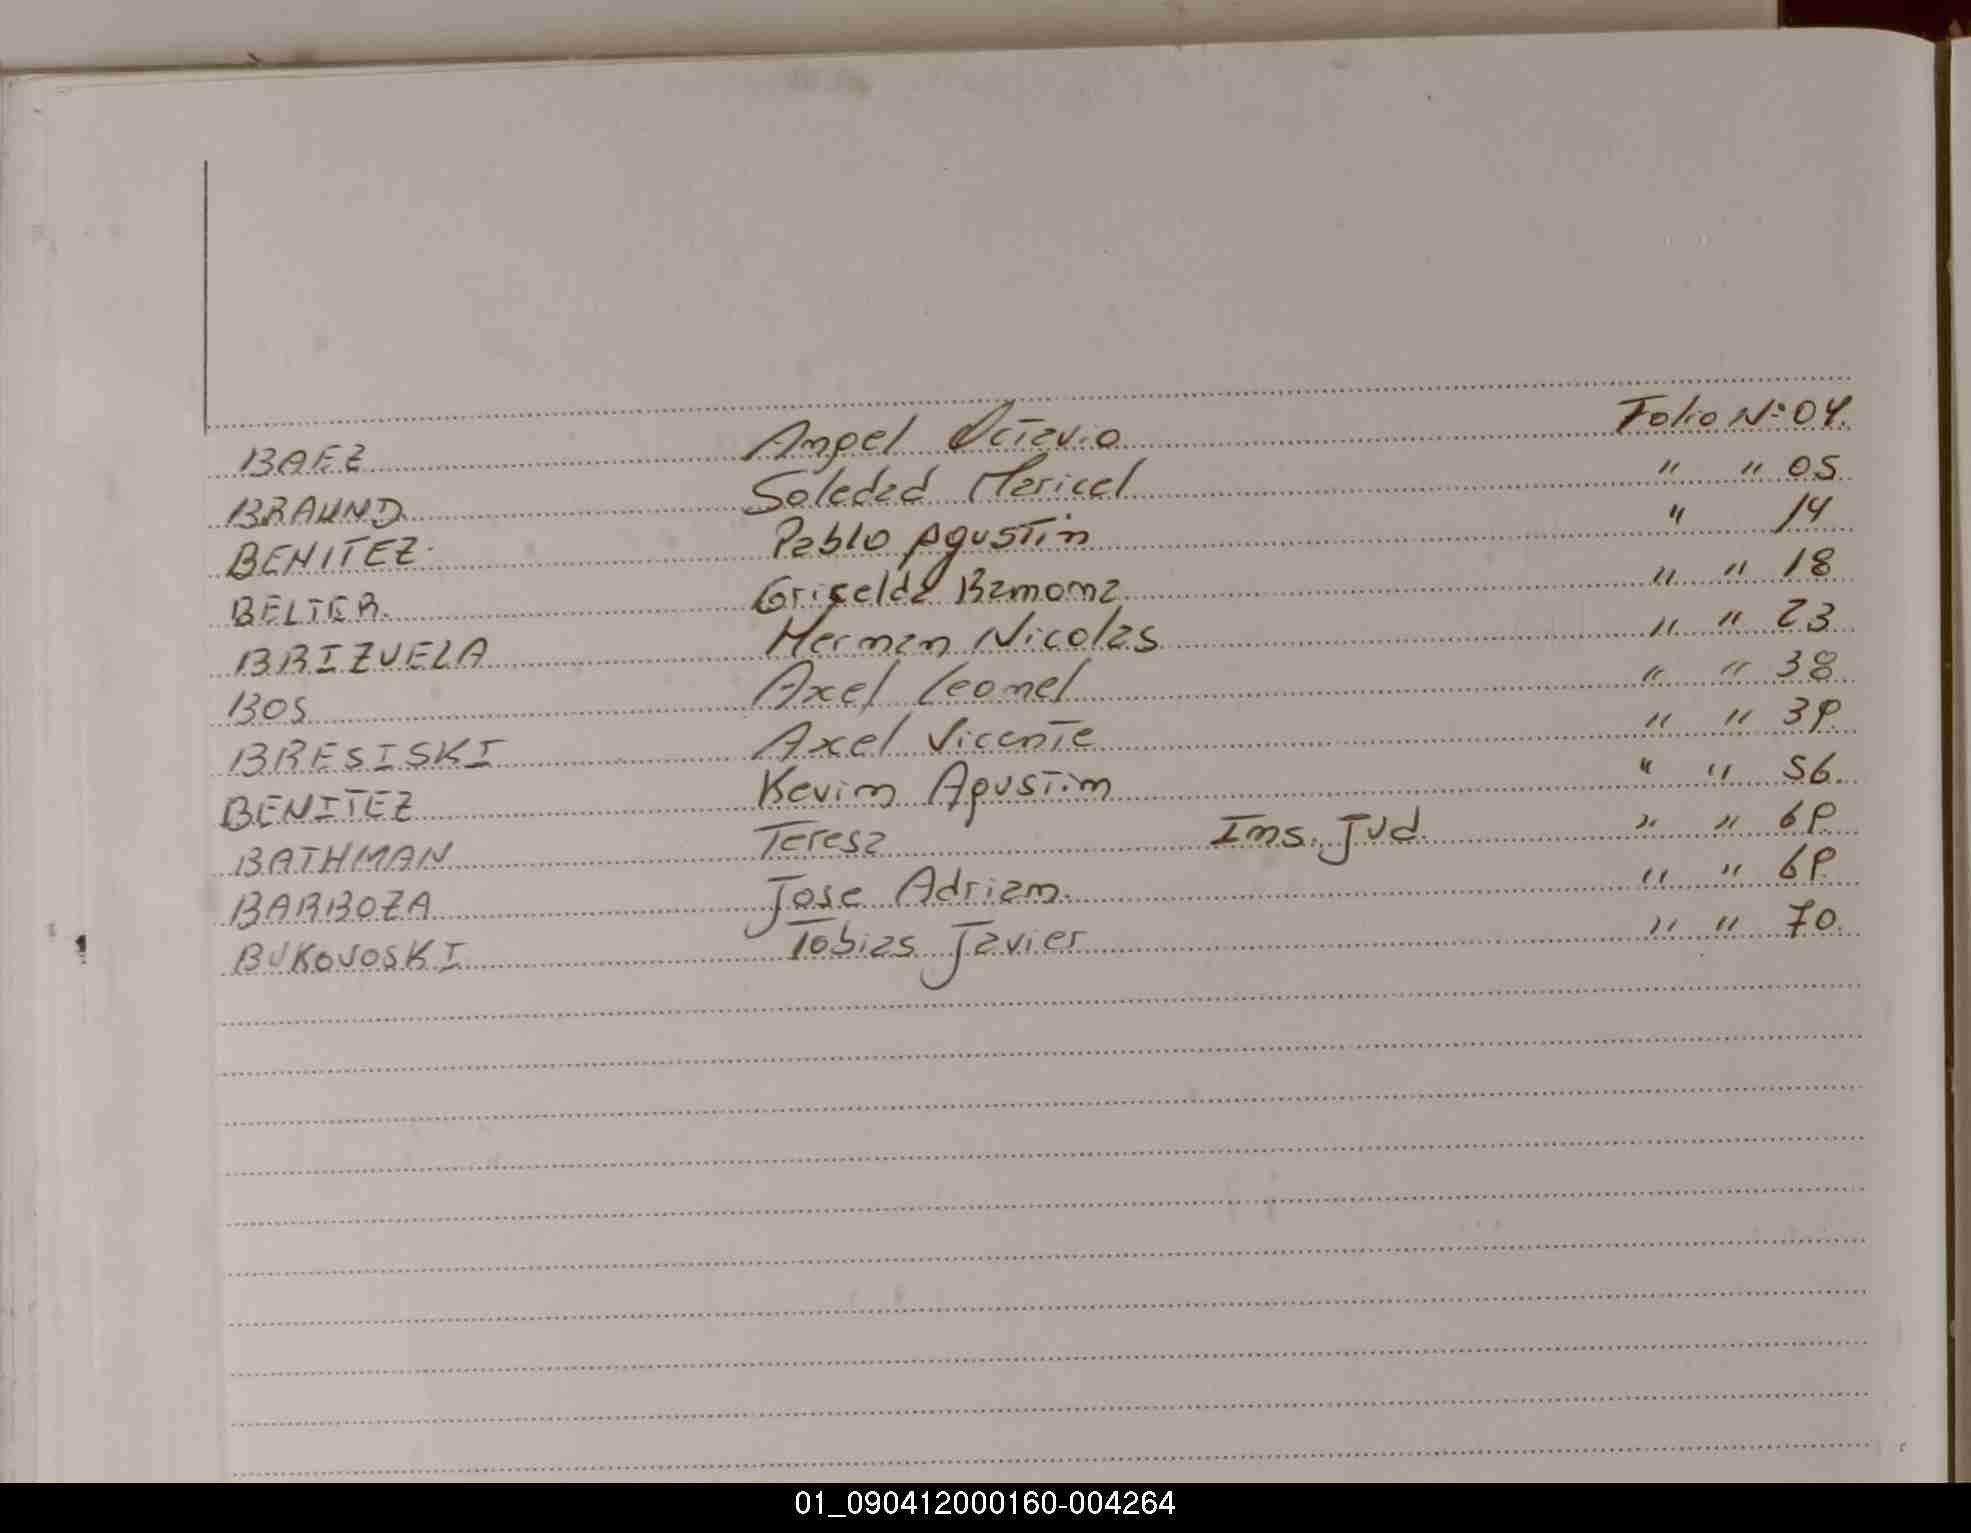 BAEZ Angel Octavio Folio Nº 04.
BRAUND Soledad Maricel " " 05
BENITEZ Pablo Agustin " 14
BELTER. Griselda Ramona " " 18
BRIZUELA Hernan Nicolas " " 23
BOS Axel Leonel " " 38
BRESISKI Axel Vicente " " 39
BENITEZ Kevin Agustin " " 56
BATHMAN Teresa Ins. Jud. " " 69
BARBOZA Jose Adrian. " " 69
BUKOVOSKI Tobias Javier " " 70
01_090412000160-004264